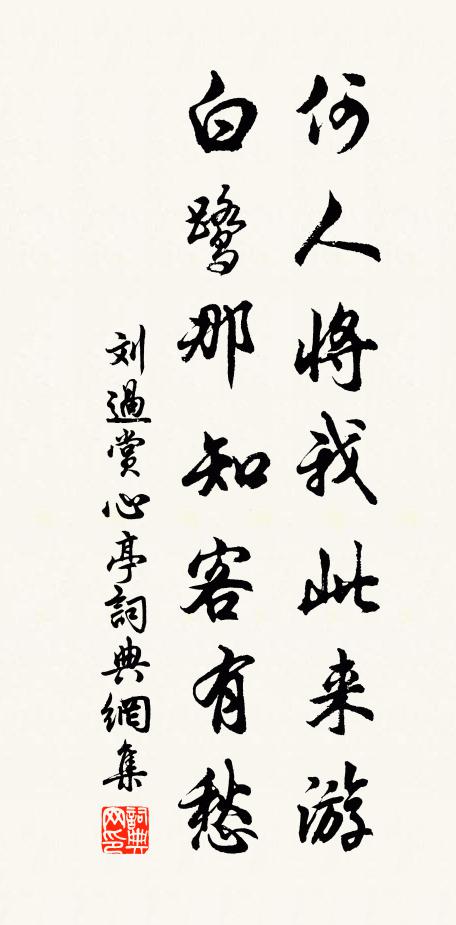 何人将我此来游
白鹭那知客有愁
刘過赏心亭詞典網集
詞典
网印